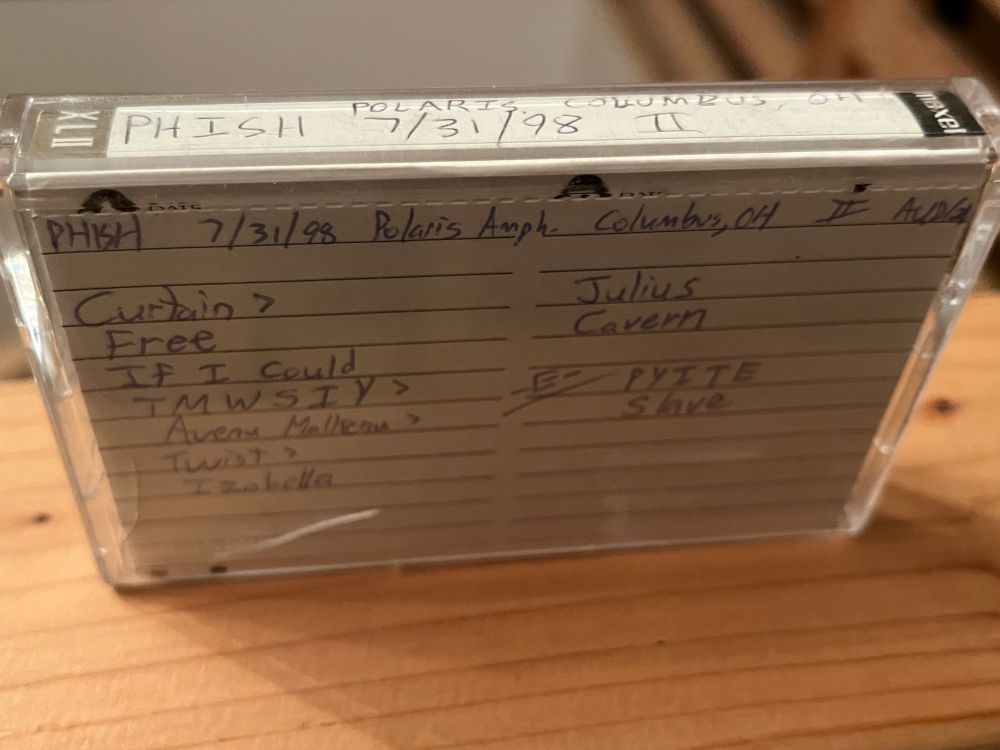 POLARIS, COLUMBUS, OH
XLII
PHISH 7/31/98 II
maxell
A DATE
B DATE
PHISH 7/31/98 Polaris Amph. Columbus, OH II
Curtain >
Free
If I Could
TMWSIY >
Avenu Malkenu >
Twist >
Izabella
Julius
Cavern
E- PYITE
Slave